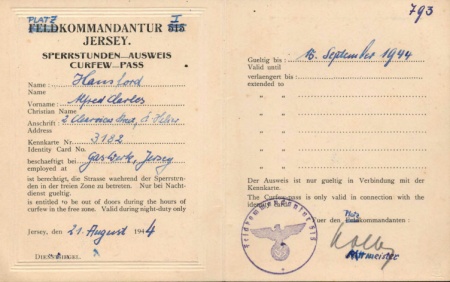 PLATZ I
FELDKOMMANDANTUR 515
JERSEY.
SPERRSTUNDEN—AUSWEIS
CURFEW—PASS
Name : Hansford
Name
Vorname : Alfred Charles
Christian Name
Anschrift : 2 St. Helier
Address
Kennkarte Nr. 3182
Identity Card No.
beschaeftigt bei Gaswerk, Jersey
employed at
ist berechtigt, die Strasse waehrend der Sperrstun-
den in der freien Zone zu betreten. Nur bei Nacht-
dienst gueltig.
is entitled to be out of doors during the hours of
curfew in the free zone. Valid during night-duty only
Jersey, den 21. August 1944
DIENSTSIEGEL.
793
Gueltig bis : 15. September 1944
Valid until
verlaengert bis :
extended to
" "
" "
" "
" "
" "
" "
Der Ausweis ist nur gueltig in Verbindung mit der
Kennkarte.
The Curfew-pass is only valid in connection with the
identity
Feldkommandantur 515
Fuer den Platzkommandanten :
Rittmeister